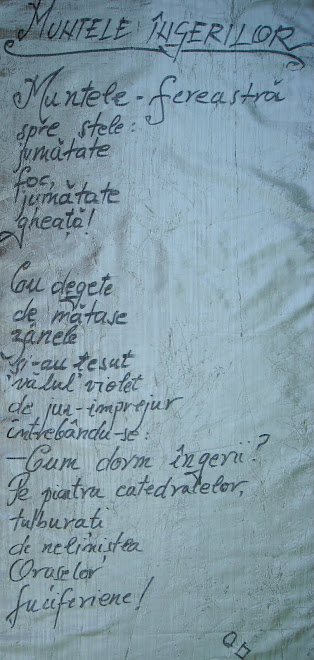 MUNTELE ÎNGERILOR
Muntele-fereastră
spre stele:
jumătate
foc,
jumătate
gheață!
Cu degete
de mătase
zânele
și-au țesut
vălul violet
de jur-împrejur
întrebându-se:
—Cum dorm îngerii?
Pe piatra catedralelor,
tulburați
de neliniștea
Orașelor
luciferiene!